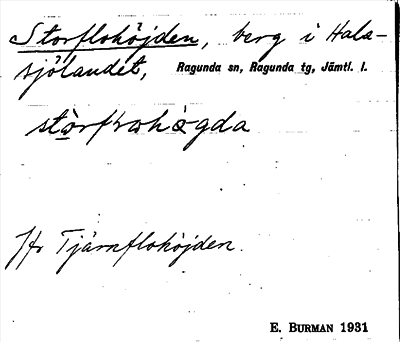 Storflohöjden, berg i Hala-
sjölandet, Ragunda sn, Ragunda tg, Jämtl. l.
Jfr Tjärnflohöjden.
E. BURMAN 1931